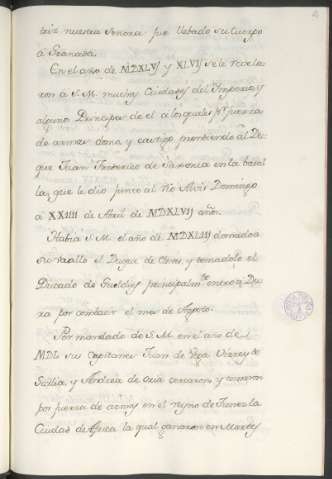 triz nuestra Señora fue llebado su Cuerpo
á Granada.
En el año de MDXLV y XLVI se le revela
ron a S.M. muchas Ciudades del Imperio, y
algunos Principes de el a los quales por fuerza
de armas domó y castigó prendiendo al Du
que Juan Frederico de Saxonia en la batal
la, que le dio junto al Rio Albis Domingo
á XXIIII de Abril de MDXLVII años.
Habia S.M. el año de MDXLIII domado a
su vasallo el Duque de Cleves y tomadole el
Ducado de Gueldres principalmte entró a Du
ra por combate el mes de Agosto.
Por mandado de S.M. en el año de
MDL sus Capitanes Juan de Vega Virrey de
Sicilia, y Andrea de Oria cercaron y tomaron
por fuerza de armas en el reyno de Tunez la
Ciudad de Africa la qual ganaron en Martes